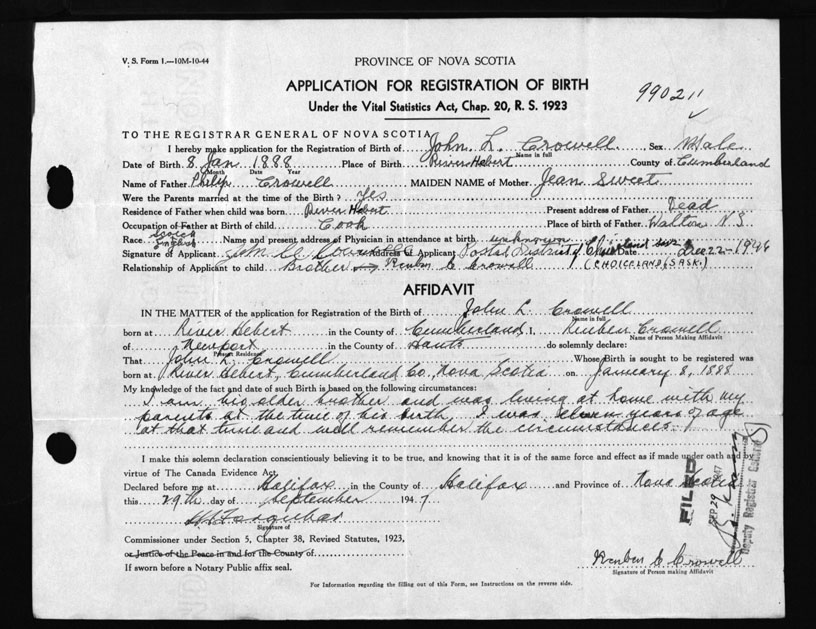 V. S. Form 1.—10M-10-44
PROVINCE OF NOVA SCOTIA
APPLICATION FOR REGISTRATION OF BIRTH
Under the Vital Statistics Act, Chap. 20, R. S. 1923
990211
TO THE REGISTRAR GENERAL OF NOVA SCOTIA
I hereby make application for the Registration of Birth of John L. Crowell Sex Male
Name in full
Date of Birth 8 Jan 1888 Place of Birth River Hebert County of Cumberland
Month Date Year
Name of Father Philip Crowell MAIDEN NAME of Mother Jean Sweet
Were the Parents married at the time of the Birth? Yes
Residence of Father when child was born River Hebert Present address of Father Dead
Occupation of Father at Birth of child Cook Place of birth of Father Walton N S
Race Scotch English Name and present address of Physician in attendance at birth unknown
Signature of Applicant Address of Applicant Postal District Date Dec 22 - 1946
Relationship of Applicant to child Brother Reuben C Crowell (CHOICELAND, SASK.)
AFFIDAVIT
IN THE MATTER of the application for Registration of the Birth of John L Crowell
Name in full
born at River Hebert in the County of Cumberland I, Reuben Crowell
Name of Person Making Affidavit
of Newport in the County of Hants do solemnly declare:
Present Residence
That John L. Crowell Whose Birth is sought to be registered was
born at River Hebert, Cumberland Co, Nova Scotia on January 8, 1888
My knowledge of the fact and date of such Birth is based on the following circumstances:
I am his older brother and was living at home with my
parents at the time of his birth. I was eleven years of age
at that time and well remember the circumstances.
I make this solemn declaration conscientiously believing it to be true, and knowing that it is of the same force and effect as if made under oath and by
virtue of The Canada Evidence Act.
Declared before me at Halifax in the County of Halifax and Province of Nova Scotia
this 29th day of September 1947
Signature of
Commissioner under Section 5, Chapter 38, Revised Statutes, 1923,
or Justice of the Peace in and for the County of
If sworn before a Notary Public affix seal.
FILED
SEP 29 1947
Deputy Registrar General
Reuben C Crowell
Signature of Person making Affidavit
For Information regarding the filling out of this Form, see Instructions on the reverse side.